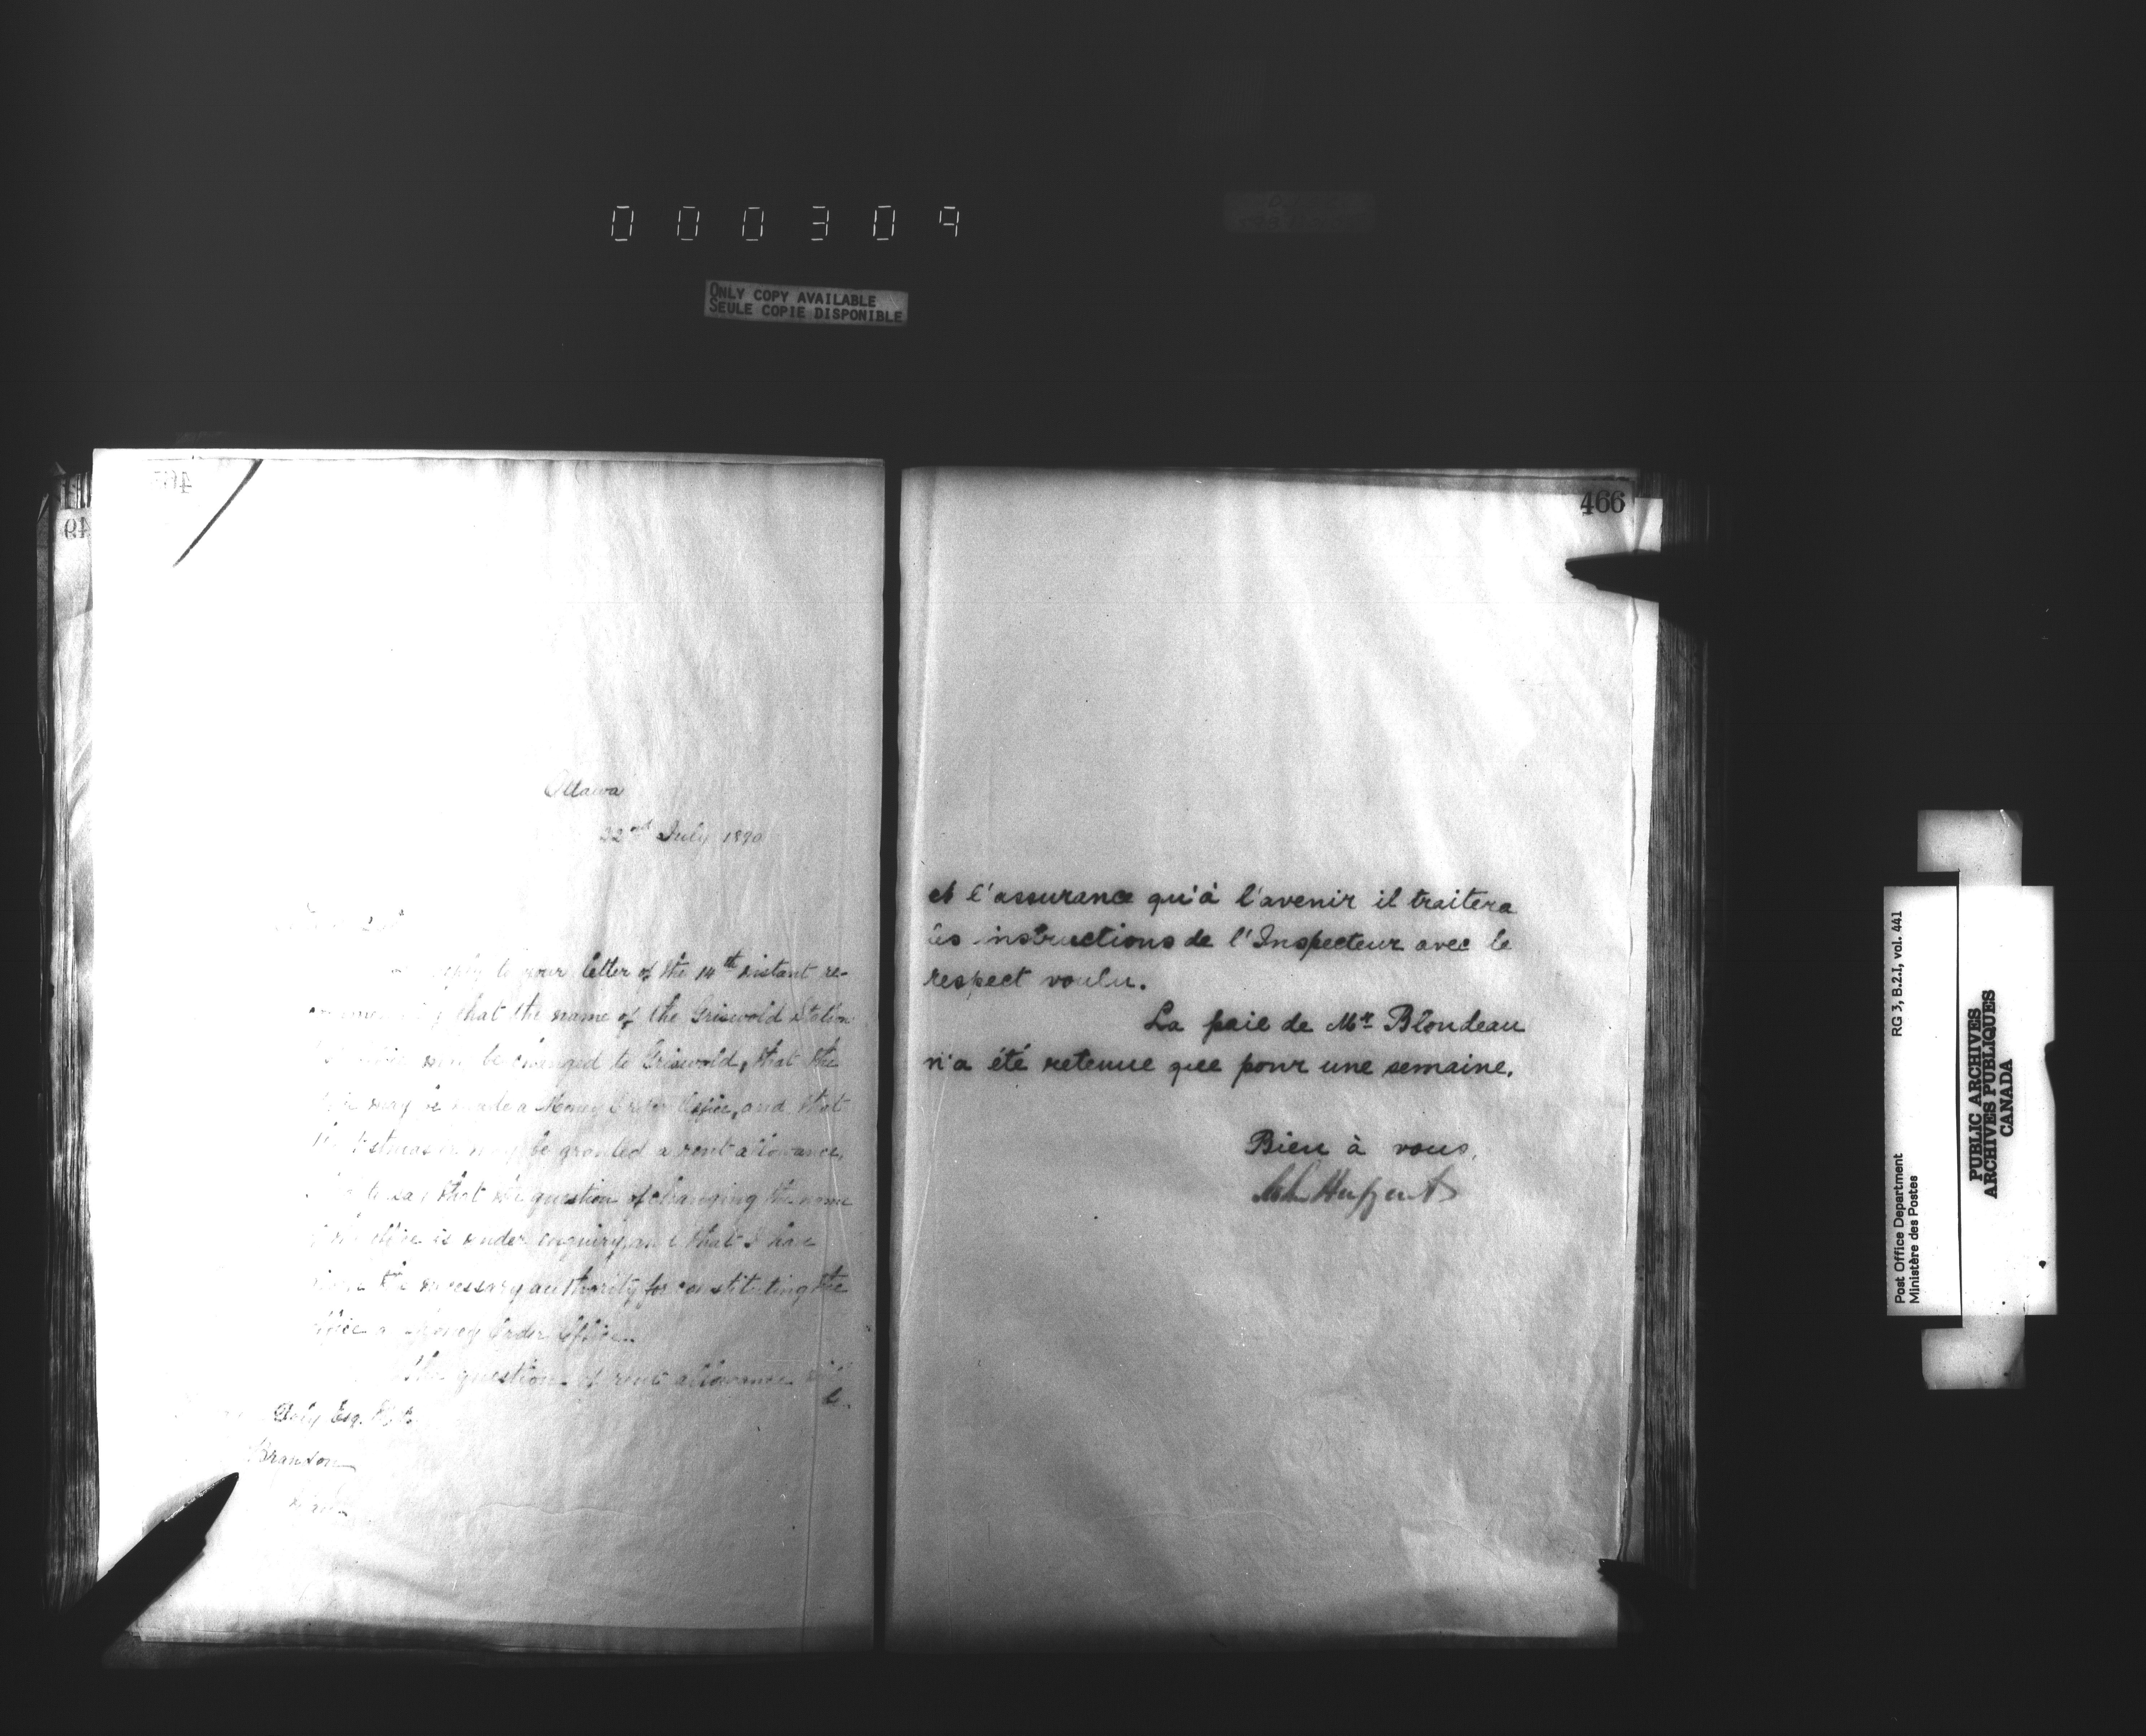 000309
ONLY COPY AVAILABLE
SEULE COPIE DISPONIBLE
Ottawa
22nd July 1890
reply to your letter of the 14th instant re-
that the name of the Griswold Station
be changed to Griswold, that the
may be made a Money Order Office, and that
the may be granted a rent allowance,
that the question of changing the name
is under enquiry, and that I have
the necessary authority for constituting the
office a Money Order Office.
The question of rent allowance
be
Daly Esq.
Brandon
466
et l'assurance qu'à l'avenir il traitera
les instructions de l'Inspecteur avec le
respect voulu.
La paie de Mr Blondeau
n'a été retenue que pour une semaine.
Bien à vous,
Post Office Department
Ministère des Postes
RG 3, B.2.I, vol. 441
PUBLIC ARCHIVES
ARCHIVES PUBLIQUES
CANADA